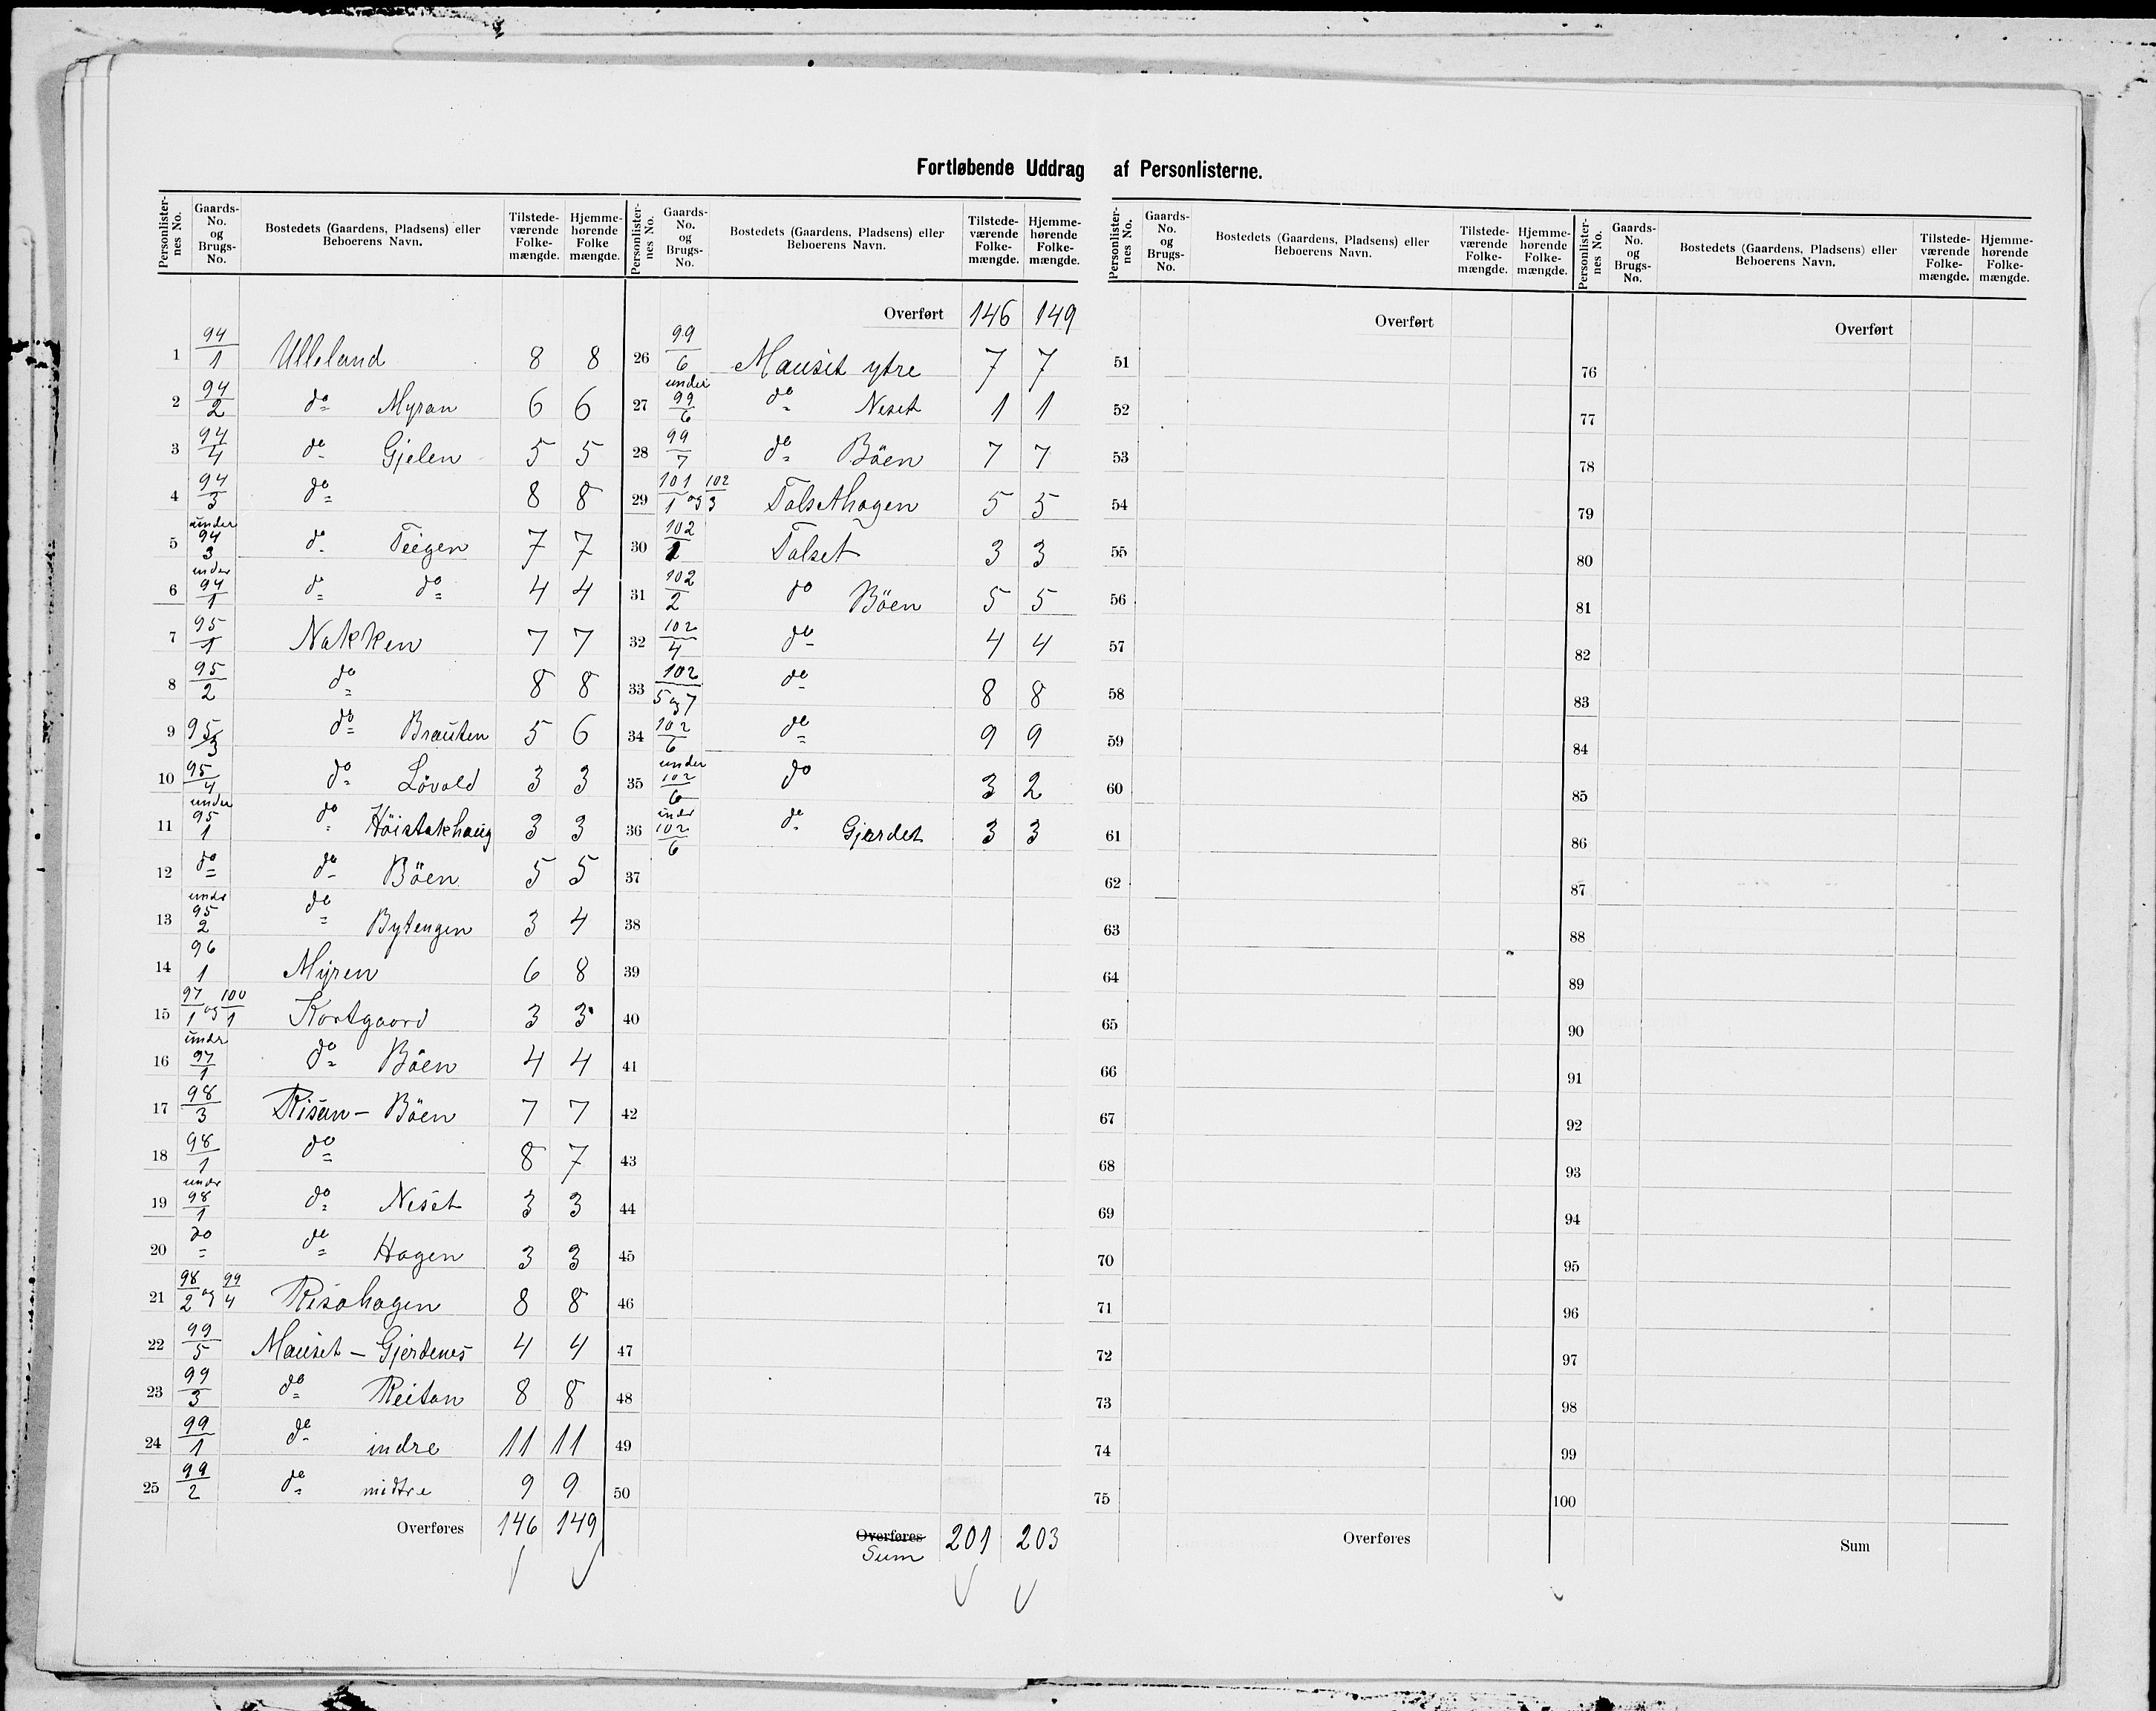 Fortløbende Uddrag af Personlisterne.
Personlisternes No. | Gaards-No. og Brugs-No. | Bostedets (Gaardens, Pladsens) eller Beboerens Navn. | Tilstedeværende Folkemængde. | Hjemmehørende Folkemængde.
1 94/1 Ulleland 8 8
2 94/2 do Myran 6 6
3 94/4 do Gjelen 5 5
4 94/3 do 8 8
5 under 94/3 do Teigen 7 7
6 under 94/1 do do 4 4
7 95/1 Nakken 7 7
8 95/2 do 8 8
9 95/3 do Brauten 5 6
10 95/4 do Lövold 3 3
11 under 95/1 do Höistakhaug 3 3
12 do do Böen 5 5
13 under 95/2 do Bytengen 3 4
14 96/1 Myren 6 8
15 97/1 og 100/1 Kortgaard 3 3
16 under 97/1 do Böen 4 4
17 98/3 Risan - Böen 7 7
18 98/1 do 8 7
19 under 98/1 do Neset 3 3
20 do do Hagen 3 3
21 98/2 og 99/4 Risahagen 8 8
22 99/5 Mauset - Gjerdenes 4 4
23 99/3 do Reitan 8 8
24 99/1 do indre 11 11
25 99/2 do midtre 9 9
Overføres 146 149
Personlisternes No. | Gaards-No. og Brugs-No. | Bostedets (Gaardens, Pladsens) eller Beboerens Navn. | Tilstedeværende Folkemængde. | Hjemmehørende Folkemængde.
Overført 146 149
26 99/6 Mauset ytre 7 7
27 under 99/6 do Neset 1 1
28 99/7 do Böen 7 7
29 101/1 og 102/3 Talsethagen 5 5
30 102/1 Talset 3 3
31 102/2 do Böen 5 5
32 102/4 do 4 4
33 102/5 og 7 do 8 8
34 102/6 do 9 9
35 under 102/6 do 3 2
36 under 102/6 do Gjerdet 3 3
37
38
39
40
41
42
43
44
45
46
47
48
49
50
Overføres
Sum 201 203
Personlisternes No. | Gaards-No. og Brugs-No. | Bostedets (Gaardens, Pladsens) eller Beboerens Navn. | Tilstedeværende Folkemængde. | Hjemmehørende Folkemængde.
Overført
51
52
53
54
55
56
57
58
59
60
61
62
63
64
65
66
67
68
69
70
71
72
73
74
75
Overføres
Personlisternes No. | Gaards-No. og Brugs-No. | Bostedets (Gaardens, Pladsens) eller Beboerens Navn. | Tilstedeværende Folkemængde. | Hjemmehørende Folkemængde.
Overført
76
77
78
79
80
81
82
83
84
85
86
87
88
89
90
91
92
93
94
95
96
97
98
99
100
Sum